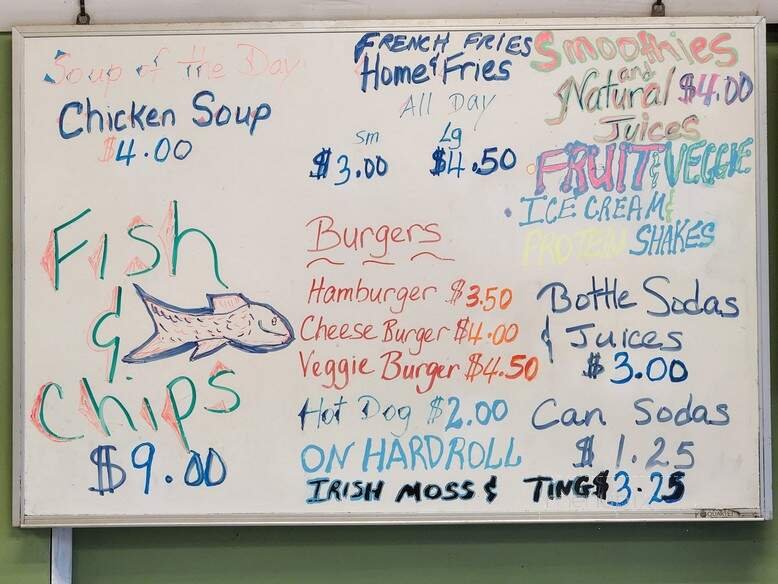 Soup of the Day
Chicken Soup
$4.00
Fish
&
Chips
$9.00
FRENCH FRIES
Home & Fries
All Day
sm Lg
$3.00 $4.50
Burgers
Hamburger $3.50
Cheese Burger $4.00
Veggie Burger $4.50
Hot Dog $2.00
ON HARDROLL
IRISH MOSS & TING $3.25
Smoothies
and
Natural $4.00
Juices
FRUIT & VEGGIE
• ICE CREAM &
PROTEIN SHAKES
Bottle Sodas
& Juices
$3.00
Can Sodas
$1.25
QUARTET